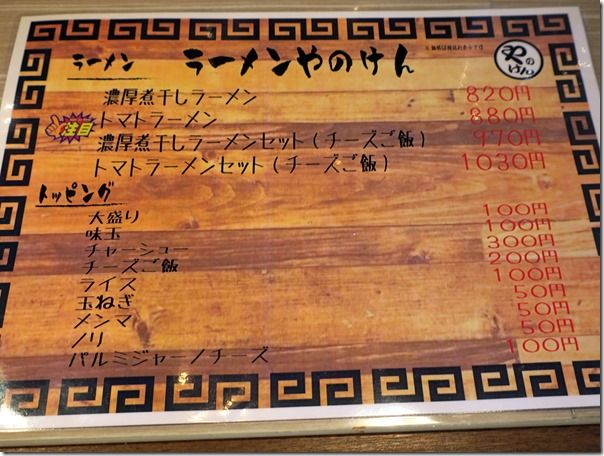 ラーメン ラーメンやのけん
やのけん
濃厚煮干しラーメン 820円
注目
トマトラーメン 880円
濃厚煮干しラーメンセット(チーズご飯) 970円
トマトラーメンセット(チーズご飯) 1030円
トッピング
大盛り 100円
味玉 100円
チャーシュー 300円
チーズご飯 200円
ライス 100円
玉ねぎ 50円
メンマ 50円
ノリ 50円
パルミジャーノチーズ 100円